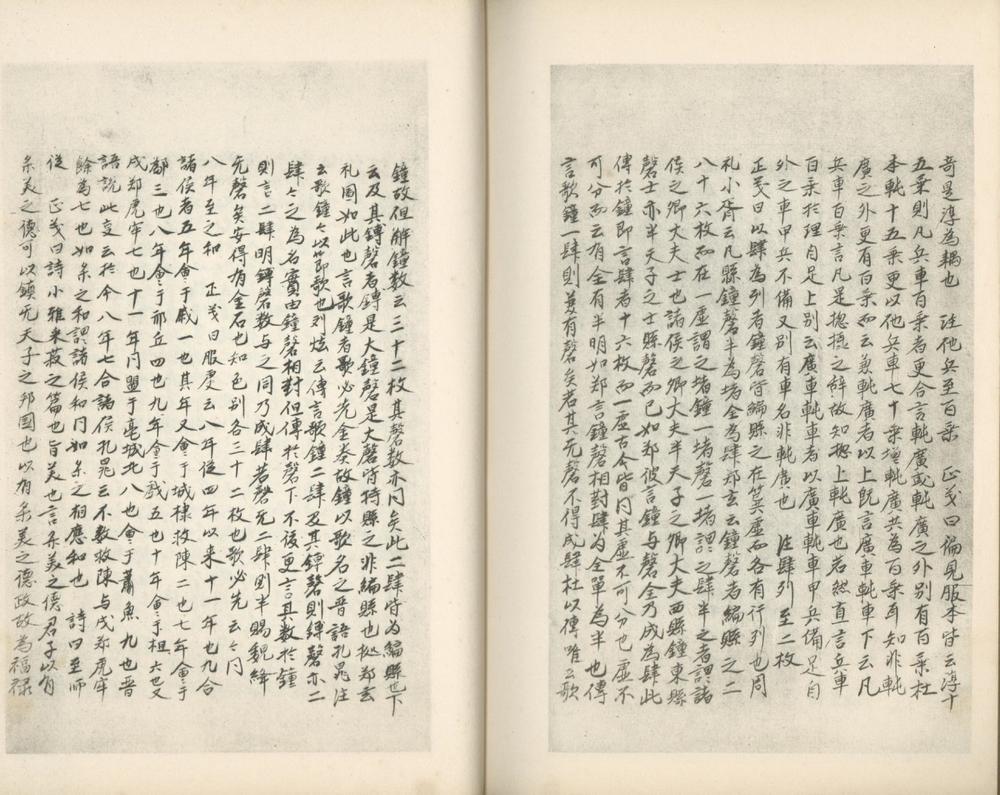 奇是淳為耦也　注他兵至百乗　正義曰徧見服本皆云淳十
五乗則凡兵車百乗者更合言軘廣或軘廣之外別有百乗杜
本軘十五乗更以他兵車七十乗増軘廣共為百乗耳知非軘
廣之外更有百乗而云兼軘廣者以上既言廣車軘車下云凡
兵車百乗言凡是揔撿之辞故知揔上軘廣也若然直言兵車
百乗於理自足上別云廣車軘車者以廣車軘車甲兵備足自
外之車甲兵不備又別有車名非軘廣也　注肆列至二枚
正義曰以肆為列者鐘磬皆編縣之在簨虡而各有行列也周
礼小胥云凡縣鐘磬半為堵全為肆鄭玄云鐘磬者編縣之二
八十六枚而在一虡謂之堵鐘一堵磬一堵謂之肆半之者謂諸
侯之卿大夫士也諸侯之卿大夫半天子之卿大夫西縣鐘東縣
磬士亦半天子之士縣磬而已如鄭彼言鐘与磬全乃成為肆此
傳於鐘即言肆者十六枚而一虡古今皆同其虡不可分也虡不
可分而云有全有半明如鄭言鐘磬相對肆為全單為半也傳
言歌鐘一肆則兼有磬矣若其无磬不得成肆杜以傳唯云歌
鐘故但解鐘数云三十二枚其磬数亦同矣此二肆皆為編縣也下
云及其鎛磬者鎛是大鐘磬是大磬皆特縣之非編縣也拠鄭玄
礼圖如此也言歌鐘者歌必先金奏故鐘以歌名之晋語孔晁注
云歌鐘々以節歌也刘炫云傳言歌鐘二肆及其鎛磬則鎛磬亦二
肆々之為名實由鐘磬相對但傳於磬下不復更言其数於鐘
則言二肆明鎛磬数与之同乃成肆若磬无二肆則半賜魏絳
无磬矣安得有金石也知色別各三十二枚也歌必先云々同
八年至之和　正義曰服虔云八年従四年以来十一年也九合
諸侯者五年會于戚一也其年又會于城棣救陳二也七年會于
鄬三也八年會于邢丘四也九年會于戲五也十年會于柤六也又
戍鄭虎牢七也十一年同盟于亳城北八也會于蕭魚九也晋
語說此变云於今八年七合諸侯孔晁云不数救陳与戍鄭虎牢
餘為七也如楽之和謂諸侯和同如楽之相應和也　詩曰至帥
従　正義曰詩小雅采菽之篇也旨美也言楽美之徳君子以有
楽美之徳可以鎮先天子之邦國也以有楽美之徳政故為福禄